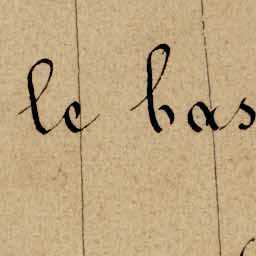 le bas